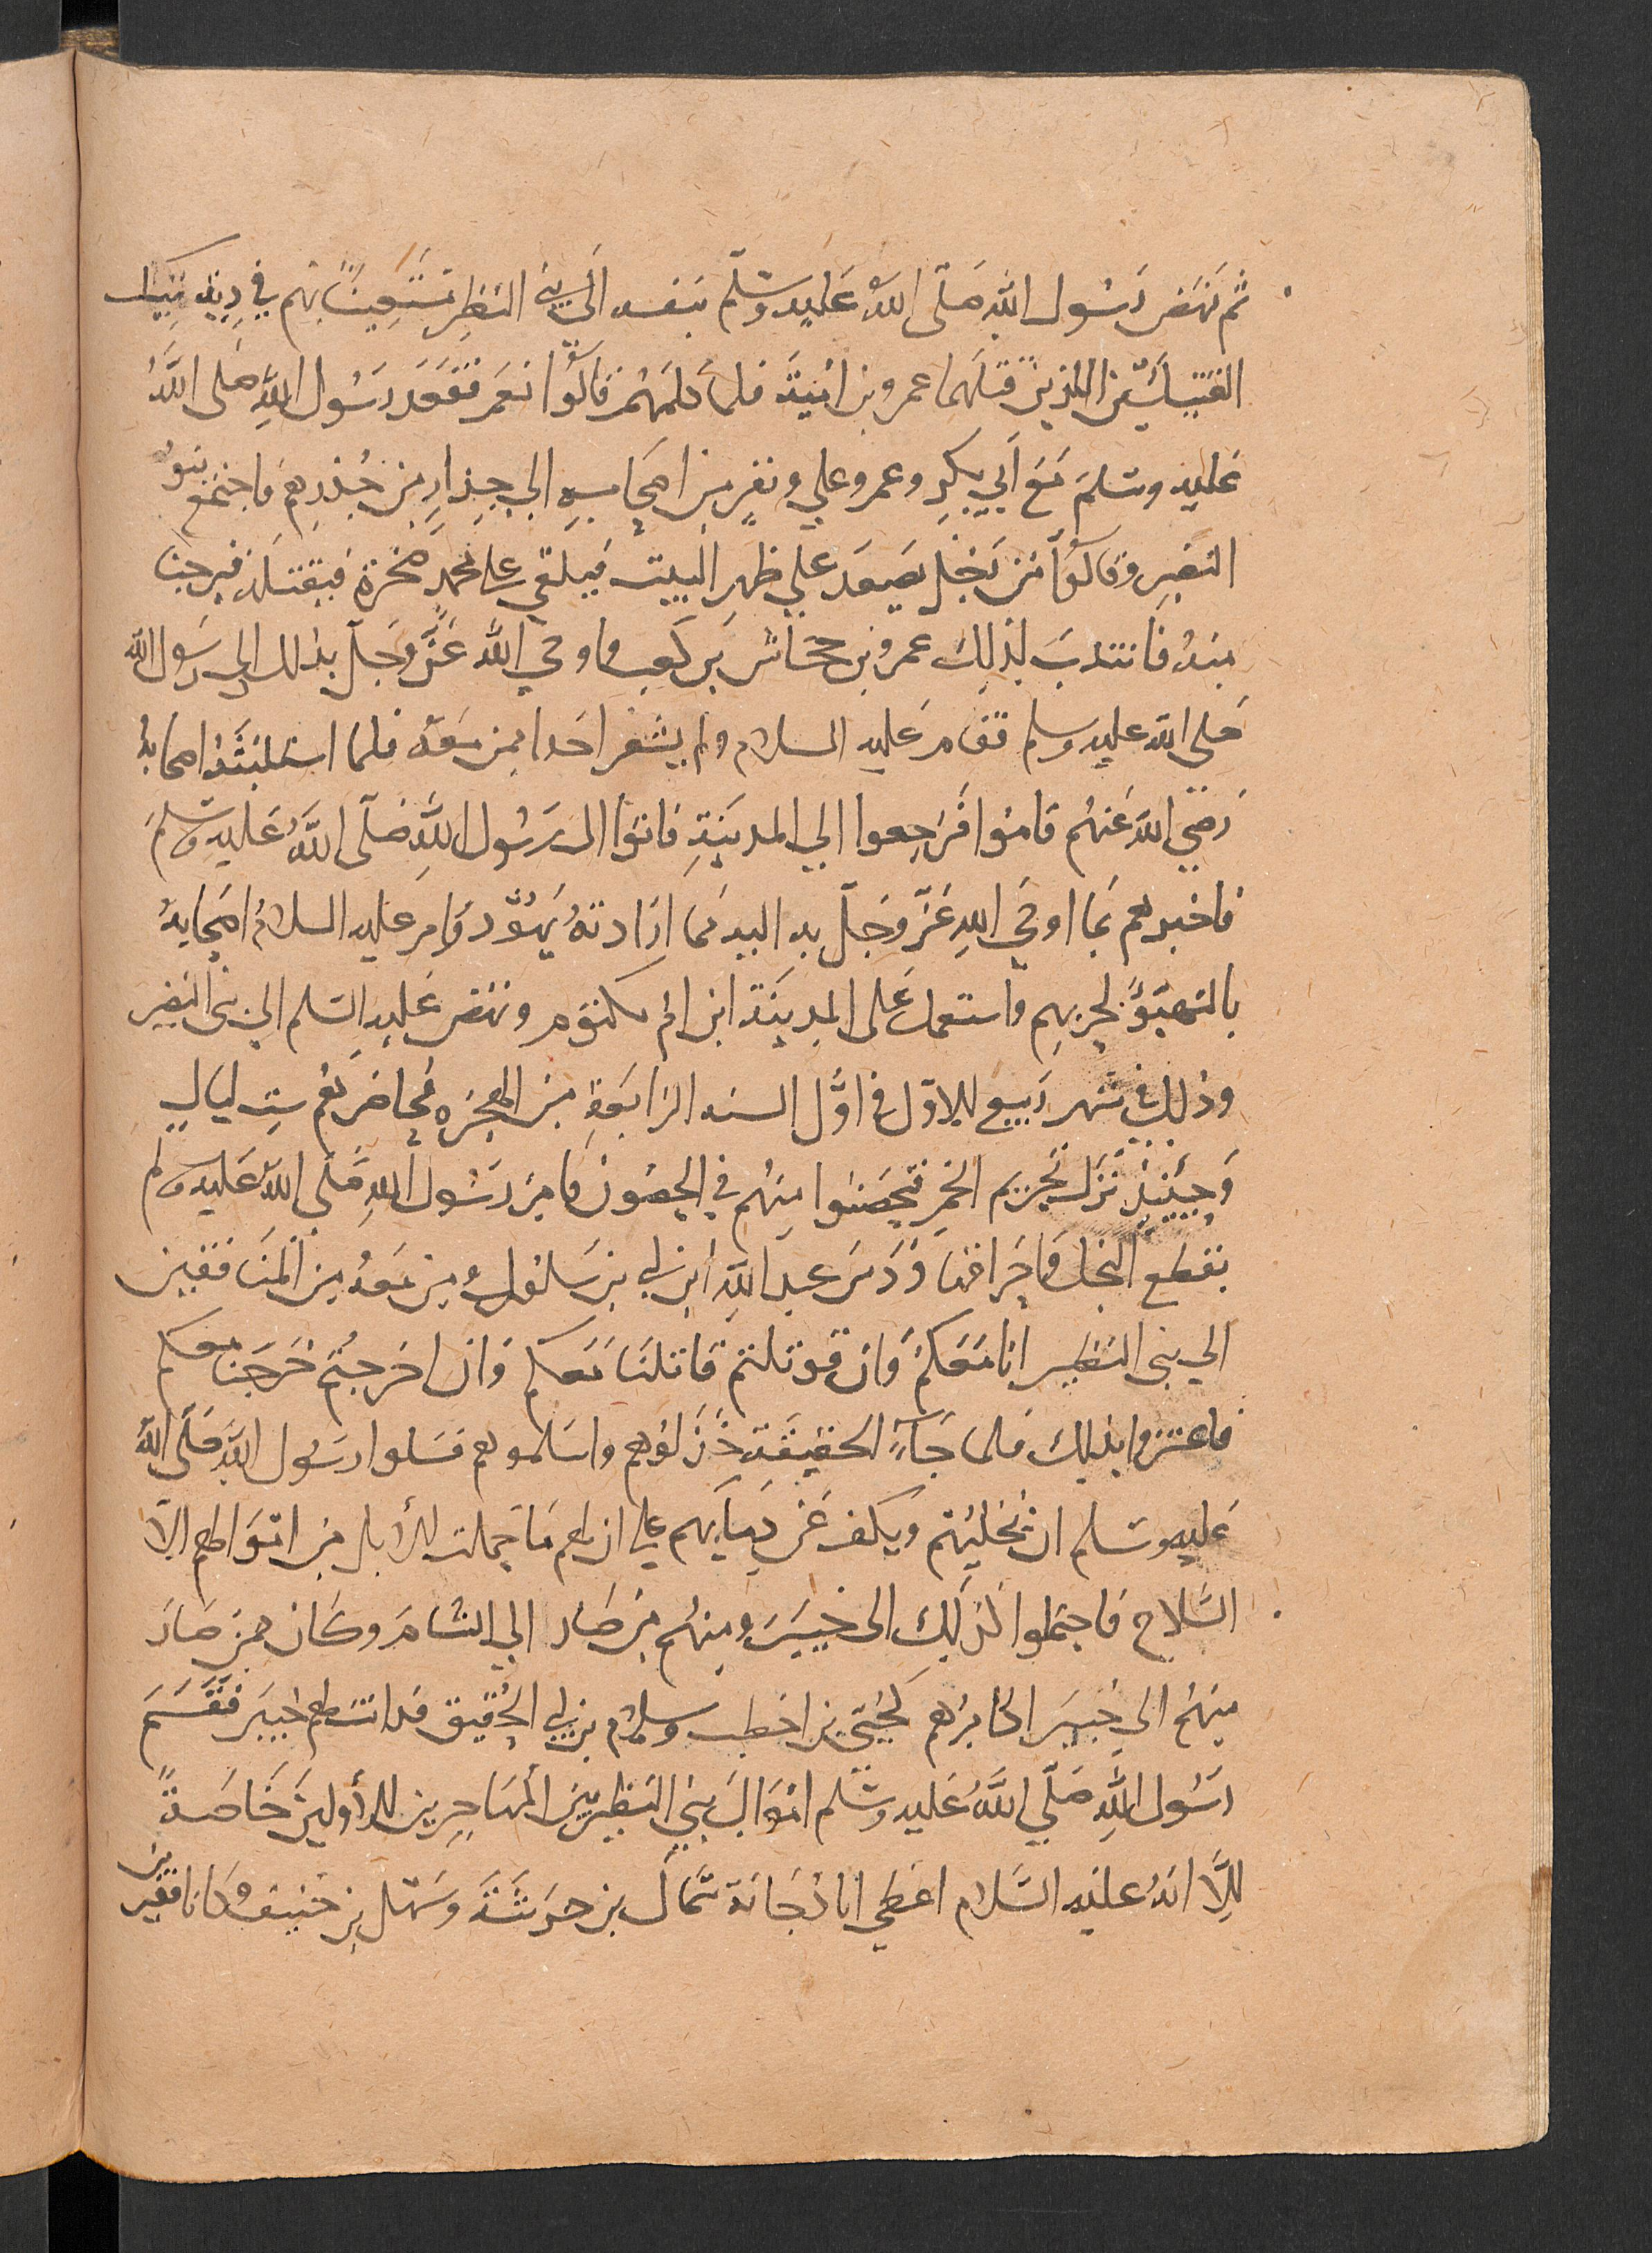 ثم نهض رَسُول الله صَلّى اللهُ عَليه وسَلّم بنفسه الى بني النظِير مُسْتَعِينًا بهم في دِيَة تيك
القتيلَين اللذين قتلهما عمرو بن اميّة فلما كلمهُم قالوُا نعَم فقعَد رَسُول اللهِ صَلى اللهُ
عَليه وسَلم مَعَ اَبي بكرِ وعمر وعلي ونفرٍ من اصحابهِ الي جِدارٍ من جُدُرِهم فاجتمَع بنو
النضير وقالوُا مَن رَجُل يصعَد علي ظهر البيت فيلقي على محمدٍ صخرة فيقتله فيرحنا
منهُ فانتدبَ لذلِك عمرو بن جحاش بن كعب فاوحي اللهُ عَزَّ وَجَلَّ بذلك الى رَسُول الله
صَلى الله عليه وسلم فقام عَليه السلام ولم يشعر احَدا ممن مَعَهُ فلما استلبثهُ اصحابهُ
رَضِيَ اللهُ عَنهُم قامُوا فَرَجعوا الي المدينَةِ فاتوُا الى رَسُول اللهِ صَلّى اللهُ عَليهِ وسَلمَ
فاخبرهم بمَا اوحَي اللهِ عَزَّ وجَلّ به اليه مما ارَادتهُ يَهُود وَامر عَليه السلامُ اصحَابهُ
بالتهيّؤ لحربهِم واستعمل عَلى المدِينَة ابن ام مكتوم ونهَض عَليهِ السَلم الي بني النضير
وذلك في شهر رَبيع الاوّل في اوَّل السنه الرابعَةِ من الهجرَه فحَاصَرهُم سِت ليَالٍ
وَحِينَئذٍ نَزَل تحريم الخمرِ فتحصَنوا منهُم في الحصُون فامَر رَسُول اللهِ صَلى اللهُ عَليه وسلم
بقطع النخل واحراقها وَدَسَ عبد اللهِ ابن ابي بن سَلول ومن مَعهُ من المنَافقين
الي بني النضير انا مَعَكُم وَان قوتلتم قاتلنَا مَعَكم وَان اخرجتُم خَرَجنا معكم
فاعتزوا بذلك فلما جَآءَت الحقيقَة خَذَلوُهم واسَلموهم فسَلوا رسَول اللهِ صَلّى اللهُ
عَليه وسَلم ان يُخليهُم ويكف عَن دِمآيهم علي ان لهم مَا حَملت الأبل من اموَالهم الاّ
السَلاح فاحتملوا كذلِكَ الى خيبَرَ ومنهُم من صَار الي الشام وكان ممن صَارَ
منهُم الي خيبَر اكَابرُهم كحُيَيّ بن اخطب وسلام بن ابي الحُقيق فدانت لهم خيبَر فقسَم
رَسُول اللهِ صَلّي اللهُ عَليه وسَلم امْوَالَ بني النظير بين المهَاجرين الأولين خَاصَةً
اِلَّا انهُ عليه السَّلام اعَطي ابا دُجَانة سماك بن خرَشَةَ وسَهل بن حنيف وكانا فقيرين